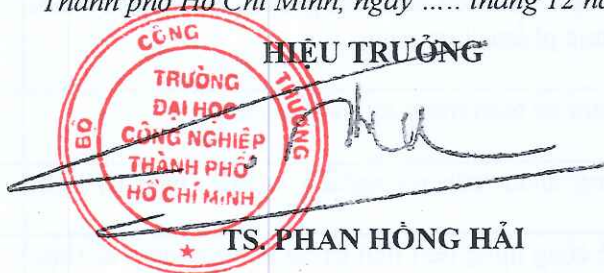 Thành phố Hồ Chí Minh, ngày ..... tháng 12 nă
HIỆU TRƯỞNG
BỘ CÔNG THƯƠNG
TRƯỜNG
ĐẠI HỌC
CÔNG NGHIỆP
THÀNH PHỐ
HỒ CHÍ MINH
TS. PHAN HỒNG HẢI